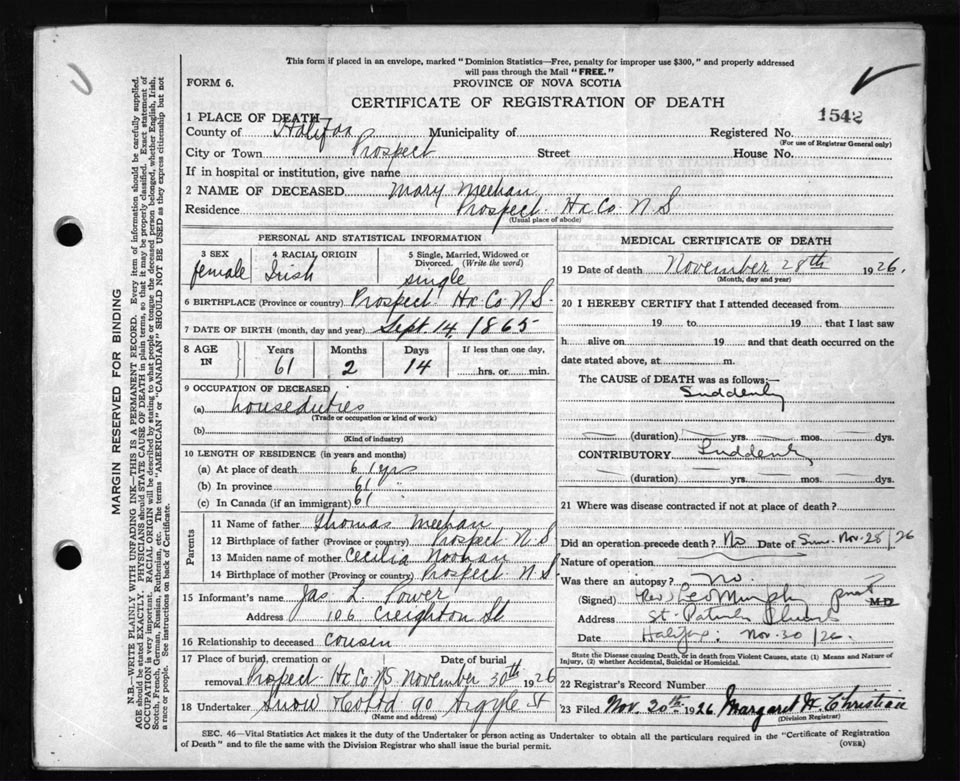 This form if placed in an envelope, marked "Dominion Statistics—Free, penalty for improper use $300," and properly addressed
will pass through the Mail "FREE."
FORM 6.
PROVINCE OF NOVA SCOTIA
CERTIFICATE OF REGISTRATION OF DEATH
1542
1 PLACE OF DEATH
County of Halifax Municipality of Registered No.
(For use of Registrar General only)
City or Town Prospect Street House No.
If in hospital or institution, give name
2 NAME OF DECEASED Mary Meehan
Residence Prospect Hx Co N S
(Usual place of abode)
PERSONAL AND STATISTICAL INFORMATION
3 SEX 4 RACIAL ORIGIN 5 Single, Married, Widowed or
Divorced. (Write the word)
female Irish single
6 BIRTHPLACE (Province or country) Prospect Hx Co N S.
7 DATE OF BIRTH (month, day and year) Sept. 14, 1865
8 AGE IN Years Months Days If less than one day,
61 2 14 hrs. or min.
9 OCCUPATION OF DECEASED
(a) houseduties
(Trade or occupation or kind of work)
(b)
(Kind of industry)
10 LENGTH OF RESIDENCE (in years and months)
(a) At place of death 61 yrs
(b) In province 61 "
(c) In Canada (if an immigrant) 61 "
Parents
11 Name of father Thomas Meehan
12 Birthplace of father (Province or country) Prospect N S
13 Maiden name of mother Cecilia Noonan
14 Birthplace of mother (Province or country) Prospect N S
15 Informant's name Jas L. Power
Address 106 Creighton St
16 Relationship to deceased cousin
17 Place of burial, cremation or Date of burial
removal Prospect Hx Co NS November 30th 1926
18 Undertaker Snow 90 Argyle St
(Name and address)
MEDICAL CERTIFICATE OF DEATH
19 Date of death November 28th 1926.
(Month, day and year)
20 I HEREBY CERTIFY that I attended deceased from
19 to 19 that I last saw
h alive on 19 and that death occurred on the
date stated above, at m.
The CAUSE of DEATH was as follows:—
Suddenly
(duration) yrs. mos. dys.
CONTRIBUTORY Suddenly
(duration) yrs. mos. dys.
21 Where was disease contracted if not at place of death?
Did an operation precede death? No Date of Sun. Nov. 28/26
Nature of operation
Was there an autopsy? no.
(Signed) Rev Leo Murphy priest M D
Address St Patricks
Date Halifax: Nov. 30/26.
State the Disease causing Death, or in death from Violent Causes, state (1) Means and Nature of
Injury, (2) whether Accidental, Suicidal or Homicidal.
22 Registrar's Record Number
23 Filed Nov. 30th 1926 Margaret H. Christian
(Division Registrar)
SEC. 46—Vital Statistics Act makes it the duty of the Undertaker or person acting as Undertaker to obtain all the particulars required in the "Certificate of Registration
of Death" and to file the same with the Division Registrar who shall issue the burial permit.
(OVER)
MARGIN RESERVED FOR BINDING
N.B.—WRITE PLAINLY WITH UNFADING INK—THIS IS A PERMANENT RECORD. Every item of information should be carefully supplied.
AGE should be stated EXACTLY. PHYSICIANS should STATE CAUSE OF DEATH in plain terms, so that it may be properly classified. Exact statement of
OCCUPATION is very important. RACIAL ORIGIN will be described by stating to what people or tongue the deceased person belonged, whether English, Irish,
Scotch, French, German, Russian, Ruthenian, etc. The terms "AMERICAN" or "CANADIAN" SHOULD NOT BE USED as they express citizenship but not
a race or people. See instructions on back of Certificate.